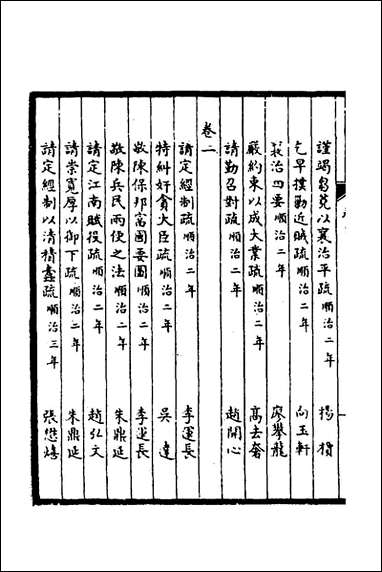 謹竭芻蕘以襄治平疏順治二年 楊璜
乞早撲勦近賊疏順治二年 向玉軒
襄治四要順治二年 廖攀龍
嚴約束以成大業疏順治二年 高去奢
請勤召對疏順治二年 趙開心
卷二
請定經制疏順治二年 李運長
特糾奸貪大臣疏順治二年 吳達
敬陳保邦富國要圖順治二年 李運長
敬陳兵民兩便之法順治二年 朱鼎延
請定江南賦役疏順治二年 趙弘文
請崇寬厚以御下疏順治二年 朱鼎延
請定經制以清積蠹疏順治三年 張懋熺